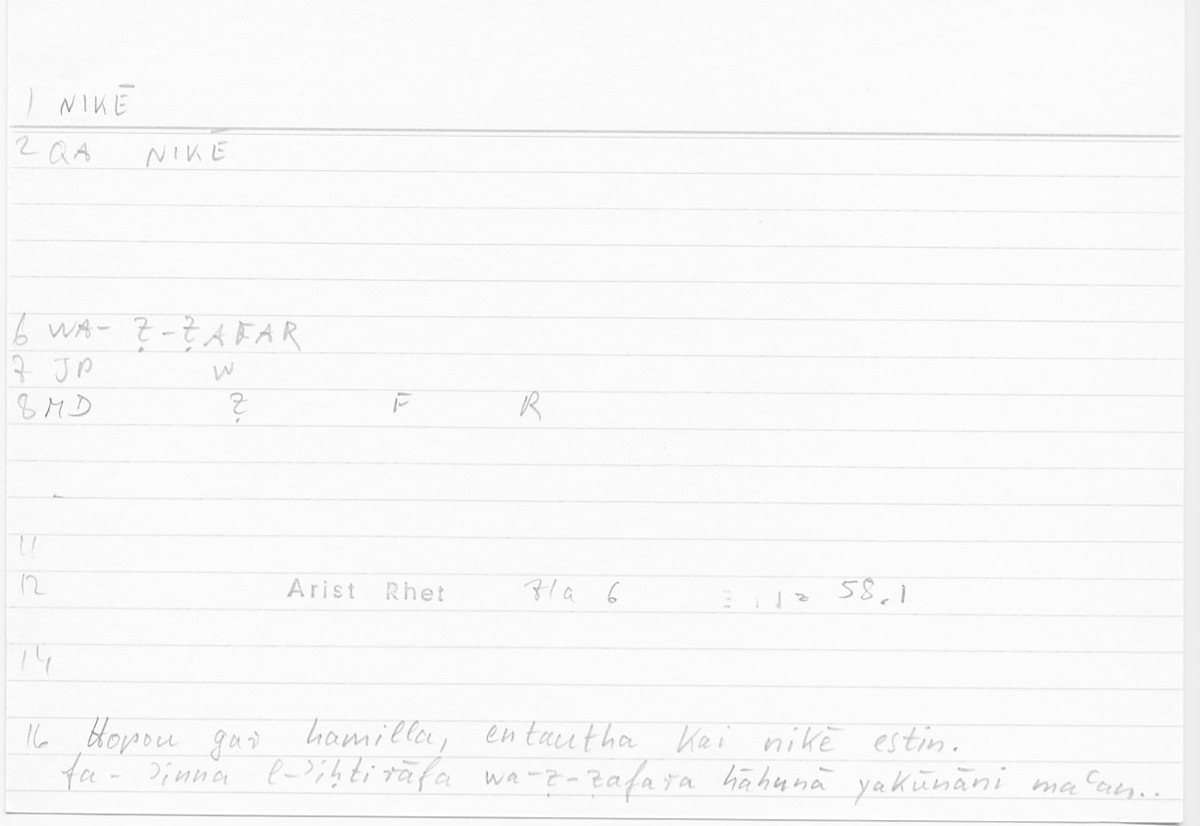 1 NIKĒ
2 QA NIKĒ
6 WA- Ẓ-ẒAFAR
7 JP W
8 MD Ẓ F R
11
12 Arist Rhet 71a 6 58.1
14
16 Hopou gar hamilla, entautha kai nikē estin.
fa-ʾinna l-ʾiḥtirāfa wa-ẓ-ẓafara hāhunā yakūnāni maʿan..